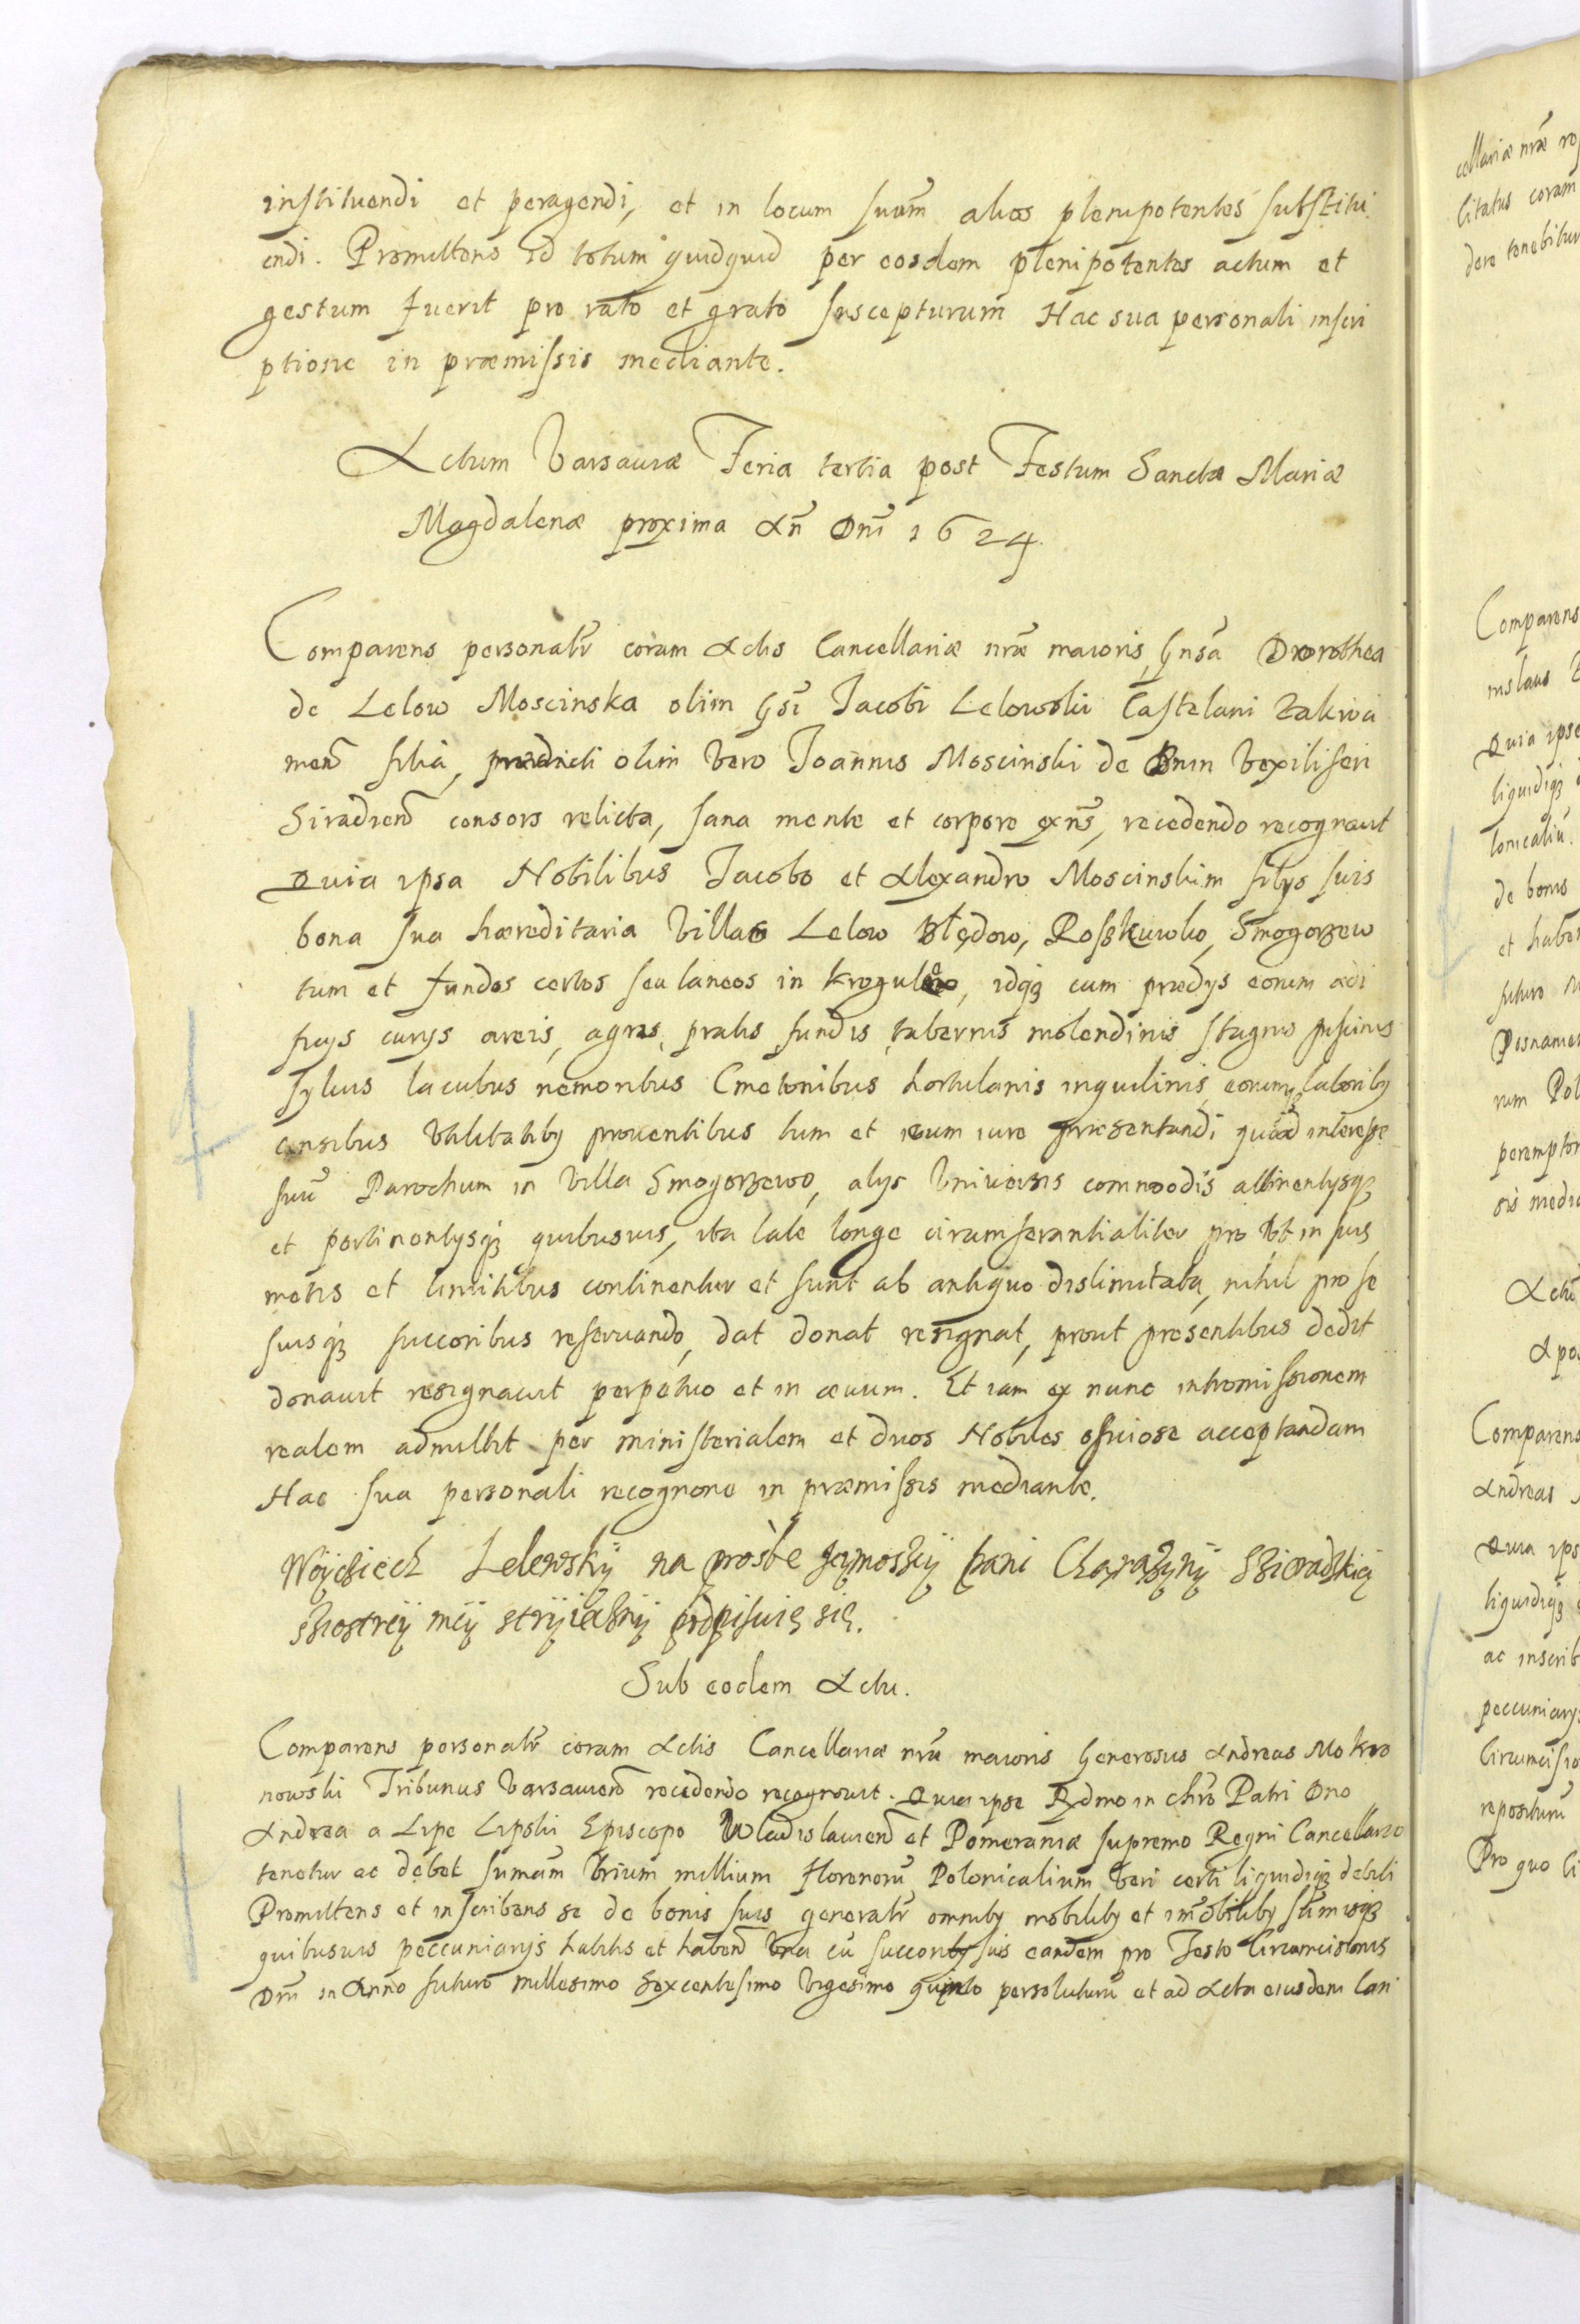 instituendi et peragendi, et in locum suum alios plenipotentes substitu
endi. Promittens id totum quidquid per eosdem plenipotentes actum et
gestum fuerit pro rato et grato suscepturum Hac sua personali inscri
ptione in præmissis mediante.
Actum Varsauiæ Feria tertia post Festum Sanctæ Mariæ
Magdalenæ proxima An̄ Dnī 1624.
Comparens personalr̄ coram Actis Cancellariæ nrǣ maioris Gnsā Dorothea
de Lelow Moscinska olim Gsī Jacobi Lelowski Castelani Zakroci
men̄ filia, olim vero Joannis Moscinski de Bnin Vexiliferi
Siradien̄ consors relicta, sana mente et corpore exn̄s, recedendo recognouit
Quia ipsa Nobilibus Jacobo et Alexandro Moscinskim filys suis
bona sua hæreditaria Villas Lelow Błędow, Rosskuwko, Smogorzew
tum et fundos certos seu laneos in idqȝ cum prædys eorum ædi
ficys curys areis, agris, pratis fundis, tabernis molendinis stagnis piscinis
syluis lacubus nemoribus Cmetonibus hortulanis inquilinis, eorumqȝ laboribȝ
censibus Vtilitatibȝ prouentibus tum et cum iure præsentandi quoad interesse
suū Parochum in Villa Smogorzewo, alys Vniuersis commodis attinentysqȝ
et pertinentysqȝ quibusuis, ita late longe circumferantialiter pro vt in suis
metis et limitibus continentur et sunt ab antiquo dislimitata, nihil pro se
suisqȝ succoribus reseruando, dat donat resignat, prout presentibus dedit
donauit resignauit perpetuo et in æuum. Et iam ex nunc intromissionem
realem admittit per ministerialem et duos Nobiles officiose acceptandam
Hac sua personali recognone in præmissis mediante.
Woÿciech Lelewskÿ na prosbe Jeÿmosciÿ pani Chorążynÿ Sieradzkieÿ
siostreÿ meÿ strÿiecznÿ podpisuię się.
Sub eodem Actu.
Comparens personalr̄ coram Actis Cancellariæ nrǣ maioris Generosus Andreas Mokro
nowski Tribunus Varsauien̄ recedendo recognouit. Quia ipse Rx̄dmo in chrō Patri Dno
Andrea a Lipe Lipski Episcopo Wladislauien̄ et Pomeraniæ supremo Regni Cancellario
tenetur ac debet sumam̄ trium millium florenorū Polonicalium veri certi liquidiqȝ debiti
Promittens et inscribens se de bonis suis generalr̄ omnibȝ mobilibȝ et im̄obilibȝ sum̄isqȝ
quibusuis peccuniarÿs habitis et haben̄ Vna cū succoribȝ suis eandem pro Festo Circumcisionis
Dnī in Anno futuro millesimo Sexcentesimo Vigesimo quinto persoluturū et ad Acta eiusdem Can
cellariæ nrǣ
litatus coram
dere tenebitur
Comparens
Quia ipse
liquidiqȝ
de bonis
futuro
rum Pol
Comparens
Andreas
Quia ips
liquidiqȝ
ac inscrib
peccuniarÿs
Circumcisio
repositurū
Pro quo